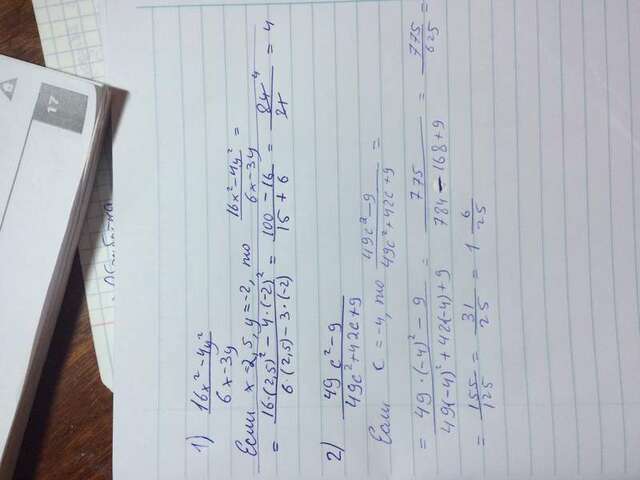 17
1) 16x² - 4y² / 6x - 3y
Если x = 2,5, y = -2, то 16x² - 4y² / 6x - 3y =
= 16·(2,5)² - 4·(-2)² / 6·(2,5) - 3·(-2) = 100 - 16 / 15 + 6 = 84 / 21 4 = 4
2) 49c² - 9 / 49c² + 42c + 9
Если c = -4, то 49c² - 9 / 49c² + 42c + 9 =
= 49·(-4)² - 9 / 49(-4)² + 42(-4) + 9 = 775 / 784 - 168 + 9 = 775 / 625 =
= 155 / 125 = 31 / 25 = 1 6/25